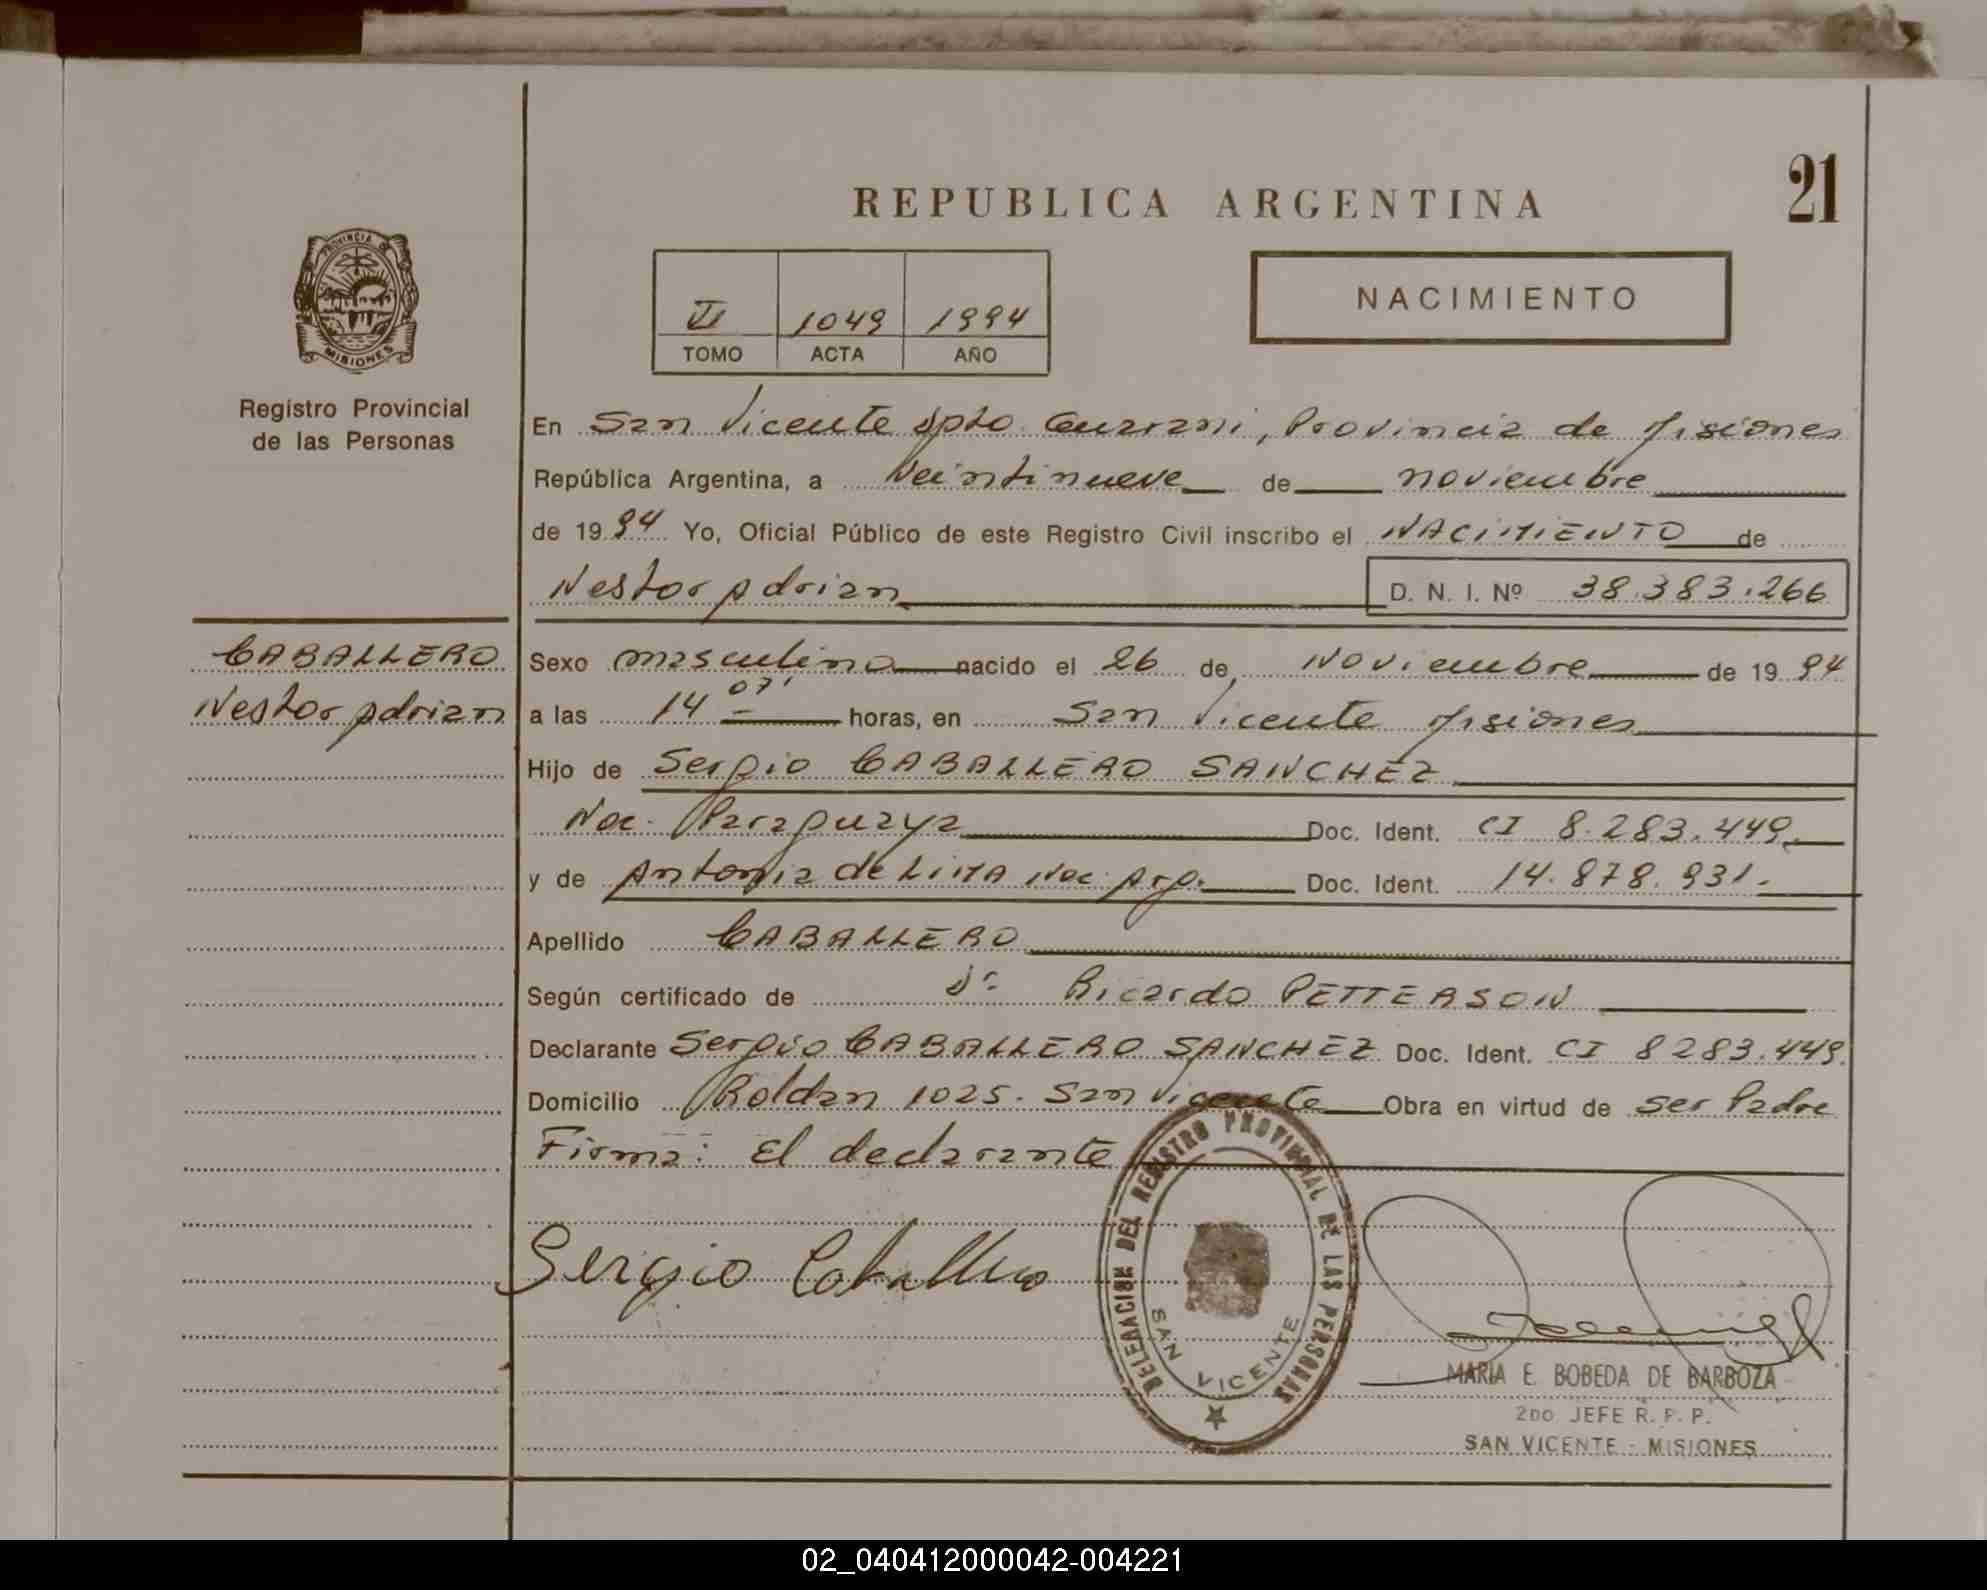 21
REPUBLICA ARGENTINA
PROVINCIA DE
MISIONES
Registro Provincial
de las Personas
VI 1049 1994
TOMO ACTA AÑO
NACIMIENTO
En San Vicente Dpto. Guarani, Provincia de Misiones
República Argentina, a Veintinueve de noviembre
de 1994 Yo, Oficial Público de este Registro Civil inscribo el NACIMIENTO de
Nestor Adrian D. N. I. Nº 38.383.266
CABALLERO
Nestor Adrian
Sexo masculino nacido el 26 de Noviembre de 1994
a las 14 07' horas, en San Vicente Misiones
Hijo de Sergio CABALLERO SANCHEZ
Nac. Paraguaya Doc. Ident. CI 8.283.449.
y de Antonia de LIMA Nac. Arg. Doc. Ident. 14.878.931.
Apellido CABALLERO
Según certificado de Dr. Ricardo PETTERSON
Declarante Sergio CABALLERO SANCHEZ Doc. Ident. CI 8283.449.
Domicilio Roldan 1025. San Vicente Obra en virtud de ser Padre
Firma: El declarante
Sergio Caballero
DELEGACION DEL REGISTRO PROVINCIAL DE LAS PERSONAS
SAN VICENTE
MARIA E. BOBEDA DE BARBOZA
2DO JEFE R. P. P.
SAN VICENTE - MISIONES
02_040412000042-004221